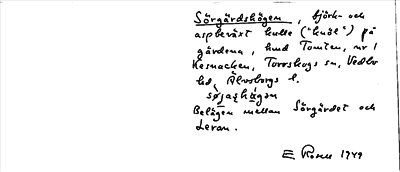 Sörgårdshögen, björk- och
aspbeväxt kulle ("knöl") på
gärdena, hmd Tomten, nr 1
Kesnacken, Torsskogs sn, Vedbo
hd, Älvsborgs l.
Belägen mellan Sörgärdet och
Leran.
E Rosell 1949